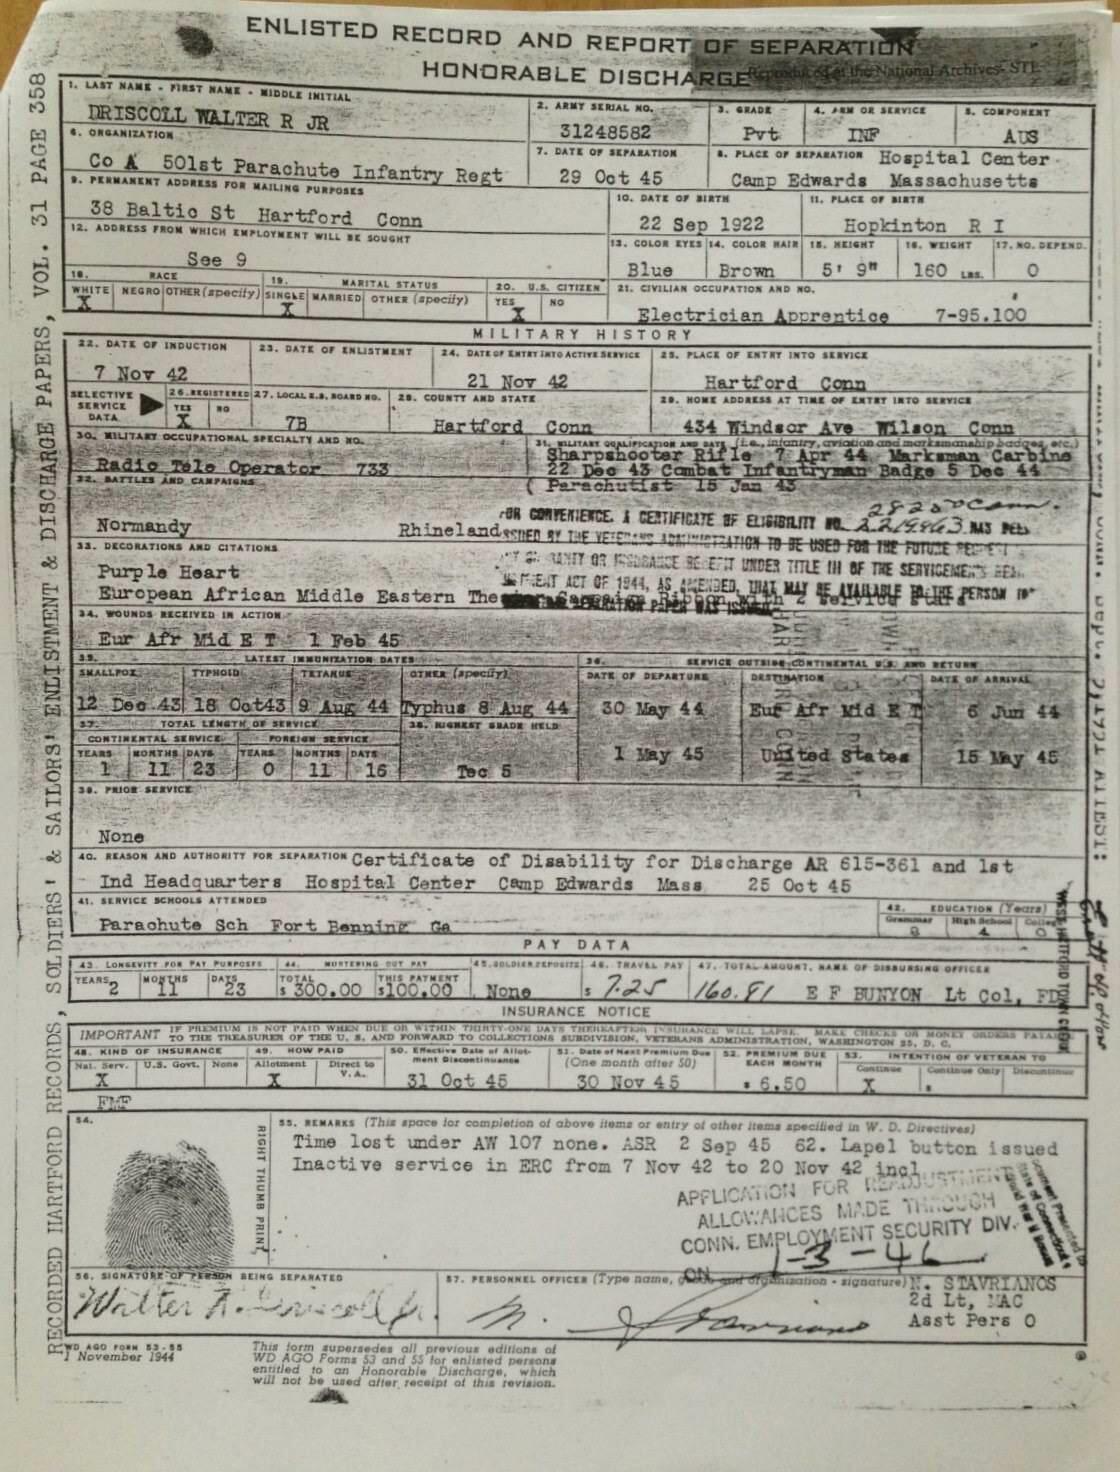 ENLISTED RECORD AND REPORT OF SEPARATION
HONORABLE DISCHARGE
Reproduced at the National Archives- STL
1. LAST NAME - FIRST NAME - MIDDLE INITIAL
DRISCOLL WALTER R JR
2. ARMY SERIAL NO.
31248582
3. GRADE
Pvt
4. ARM OR SERVICE
INF
5. COMPONENT
AUS
6. ORGANIZATION
Co A 501st Parachute Infantry Regt
7. DATE OF SEPARATION
29 Oct 45
8. PLACE OF SEPARATION Hospital Center
Camp Edwards Massachusetts
9. PERMANENT ADDRESS FOR MAILING PURPOSES
38 Baltic St Hartford Conn
10. DATE OF BIRTH
22 Sep 1922
11. PLACE OF BIRTH
Hopkinton R I
12. ADDRESS FROM WHICH EMPLOYMENT WILL BE SOUGHT
See 9
13. COLOR EYES
Blue
14. COLOR HAIR
Brown
15. HEIGHT
5' 9"
16. WEIGHT
160 LBS.
17. NO. DEPEND.
0
18. RACE
WHITE NEGRO OTHER (specify)
X
19. MARITAL STATUS
SINGLE MARRIED OTHER (specify)
X
20. U.S. CITIZEN
YES NO
X
21. CIVILIAN OCCUPATION AND NO.
Electrician Apprentice 7-95.100
MILITARY HISTORY
22. DATE OF INDUCTION
7 Nov 42
23. DATE OF ENLISTMENT
24. DATE OF ENTRY INTO ACTIVE SERVICE
21 Nov 42
25. PLACE OF ENTRY INTO SERVICE
Hartford Conn
SELECTIVE
SERVICE
DATA
26. REGISTERED
YES NO
X
27. LOCAL S.S. BOARD NO.
7B
28. COUNTY AND STATE
Hartford Conn
29. HOME ADDRESS AT TIME OF ENTRY INTO SERVICE
434 Windsor Ave Wilson Conn
30. MILITARY OCCUPATIONAL SPECIALTY AND NO.
Radio Tele Operator 733
31. MILITARY QUALIFICATION AND DATE (i.e., infantry, aviation and marksmanship badges, etc.)
Sharpshooter Rifle 7 Apr 44 Marksman Carbine
22 Dec 43 Combat Infantryman Badge 5 Dec 44
( Parachutist 15 Jan 43
32. BATTLES AND CAMPAIGNS
Normandy Rhineland
FOR CONVENIENCE, A CERTIFICATE OF ELIGIBILITY NO. 2219863 HAS BEEN
ISSUED BY THE VETERANS ADMINISTRATION TO BE USED FOR THE FUTURE REQUEST
GUARANTY OR INSURANCE BENEFIT UNDER TITLE III OF THE SERVICEMEN'S
ACT OF 1944, AS AMENDED, THAT MAY BE AVAILABLE TO THE PERSON TO
SEPARATION PAPER WAS ISSUED
33. DECORATIONS AND CITATIONS
Purple Heart
European African Middle Eastern Theater Campaign Ribbon with 2 service stars
34. WOUNDS RECEIVED IN ACTION
Eur Afr Mid E T 1 Feb 45
35. LATEST IMMUNIZATION DATES
SMALLPOX TYPHOID TETANUS OTHER (specify)
12 Dec 43 18 Oct43 9 Aug 44 Typhus 8 Aug 44
36. SERVICE OUTSIDE CONTINENTAL U.S. AND RETURN
DATE OF DEPARTURE DESTINATION DATE OF ARRIVAL
30 May 44 Eur Afr Mid E T 6 Jun 44
1 May 45 United States 15 May 45
37. TOTAL LENGTH OF SERVICE
CONTINENTAL SERVICE FOREIGN SERVICE
YEARS MONTHS DAYS YEARS MONTHS DAYS
1 11 23 0 11 16
38. HIGHEST GRADE HELD
Tec 5
39. PRIOR SERVICE
None
40. REASON AND AUTHORITY FOR SEPARATION Certificate of Disability for Discharge AR 615-361 and 1st
Ind Headquarters Hospital Center Camp Edwards Mass 25 Oct 45
41. SERVICE SCHOOLS ATTENDED
Parachute Sch Fort Benning Ga
42. EDUCATION (Years)
Grammar High School College
8 4 0
PAY DATA
43. LONGEVITY FOR PAY PURPOSES
YEARS MONTHS DAYS
2 11 23
44. MUSTERING OUT PAY
TOTAL THIS PAYMENT
$ 300.00 $100.00
45. SOLDIER DEPOSITS
None
46. TRAVEL PAY
$ 7.25
47. TOTAL AMOUNT, NAME OF DISBURSING OFFICER
160.81 E F BUNYON Lt Col, FD
INSURANCE NOTICE
IMPORTANT IF PREMIUM IS NOT PAID WHEN DUE OR WITHIN THIRTY-ONE DAYS THEREAFTER INSURANCE WILL LAPSE. MAKE CHECKS OR MONEY ORDERS PAYABLE
TO THE TREASURER OF THE U. S. AND FORWARD TO COLLECTIONS SUBDIVISION, VETERANS ADMINISTRATION, WASHINGTON 25, D. C.
48. KIND OF INSURANCE
Nat. Serv. U.S. Govt. None
X
49. HOW PAID
Allotment Direct to V. A.
X
50. Effective Date of Allotment Discontinuance
31 Oct 45
51. Date of Next Premium Due
(One month after 50)
30 Nov 45
52. PREMIUM DUE
EACH MONTH
$ 6.50
53. INTENTION OF VETERAN TO
Continue Continue Only Discontinue
X
FMF
54.
RIGHT THUMB PRINT
55. REMARKS (This space for completion of above items or entry of other items specified in W. D. Directives)
Time lost under AW 107 none. ASR 2 Sep 45 62. Lapel button issued
Inactive service in ERC from 7 Nov 42 to 20 Nov 42 incl
APPLICATION FOR READJUSTMENT
ALLOWANCES MADE THROUGH
CONN. EMPLOYMENT SECURITY DIV.
ON 1-3-46
Document Presented to
State of Connecticut
World War II Bonus
56. SIGNATURE OF PERSON BEING SEPARATED
Walter R. Driscoll Jr.
57. PERSONNEL OFFICER (Type name, grade and organization - signature)
N. STAVRIANOS
2d Lt, MAC
Asst Pers O
N. Stavrianos
WD AGO FORM 53-55
1 November 1944
This form supersedes all previous editions of
WD AGO Forms 53 and 55 for enlisted persons
entitled to an Honorable Discharge, which
will not be used after receipt of this revision.
RECORDED HARTFORD RECORDS, SOLDIERS' & SAILORS' ENLISTMENT & DISCHARGE PAPERS, VOL. 31 PAGE 358
WEST HARTFORD TOWN CLERK
ATTEST: